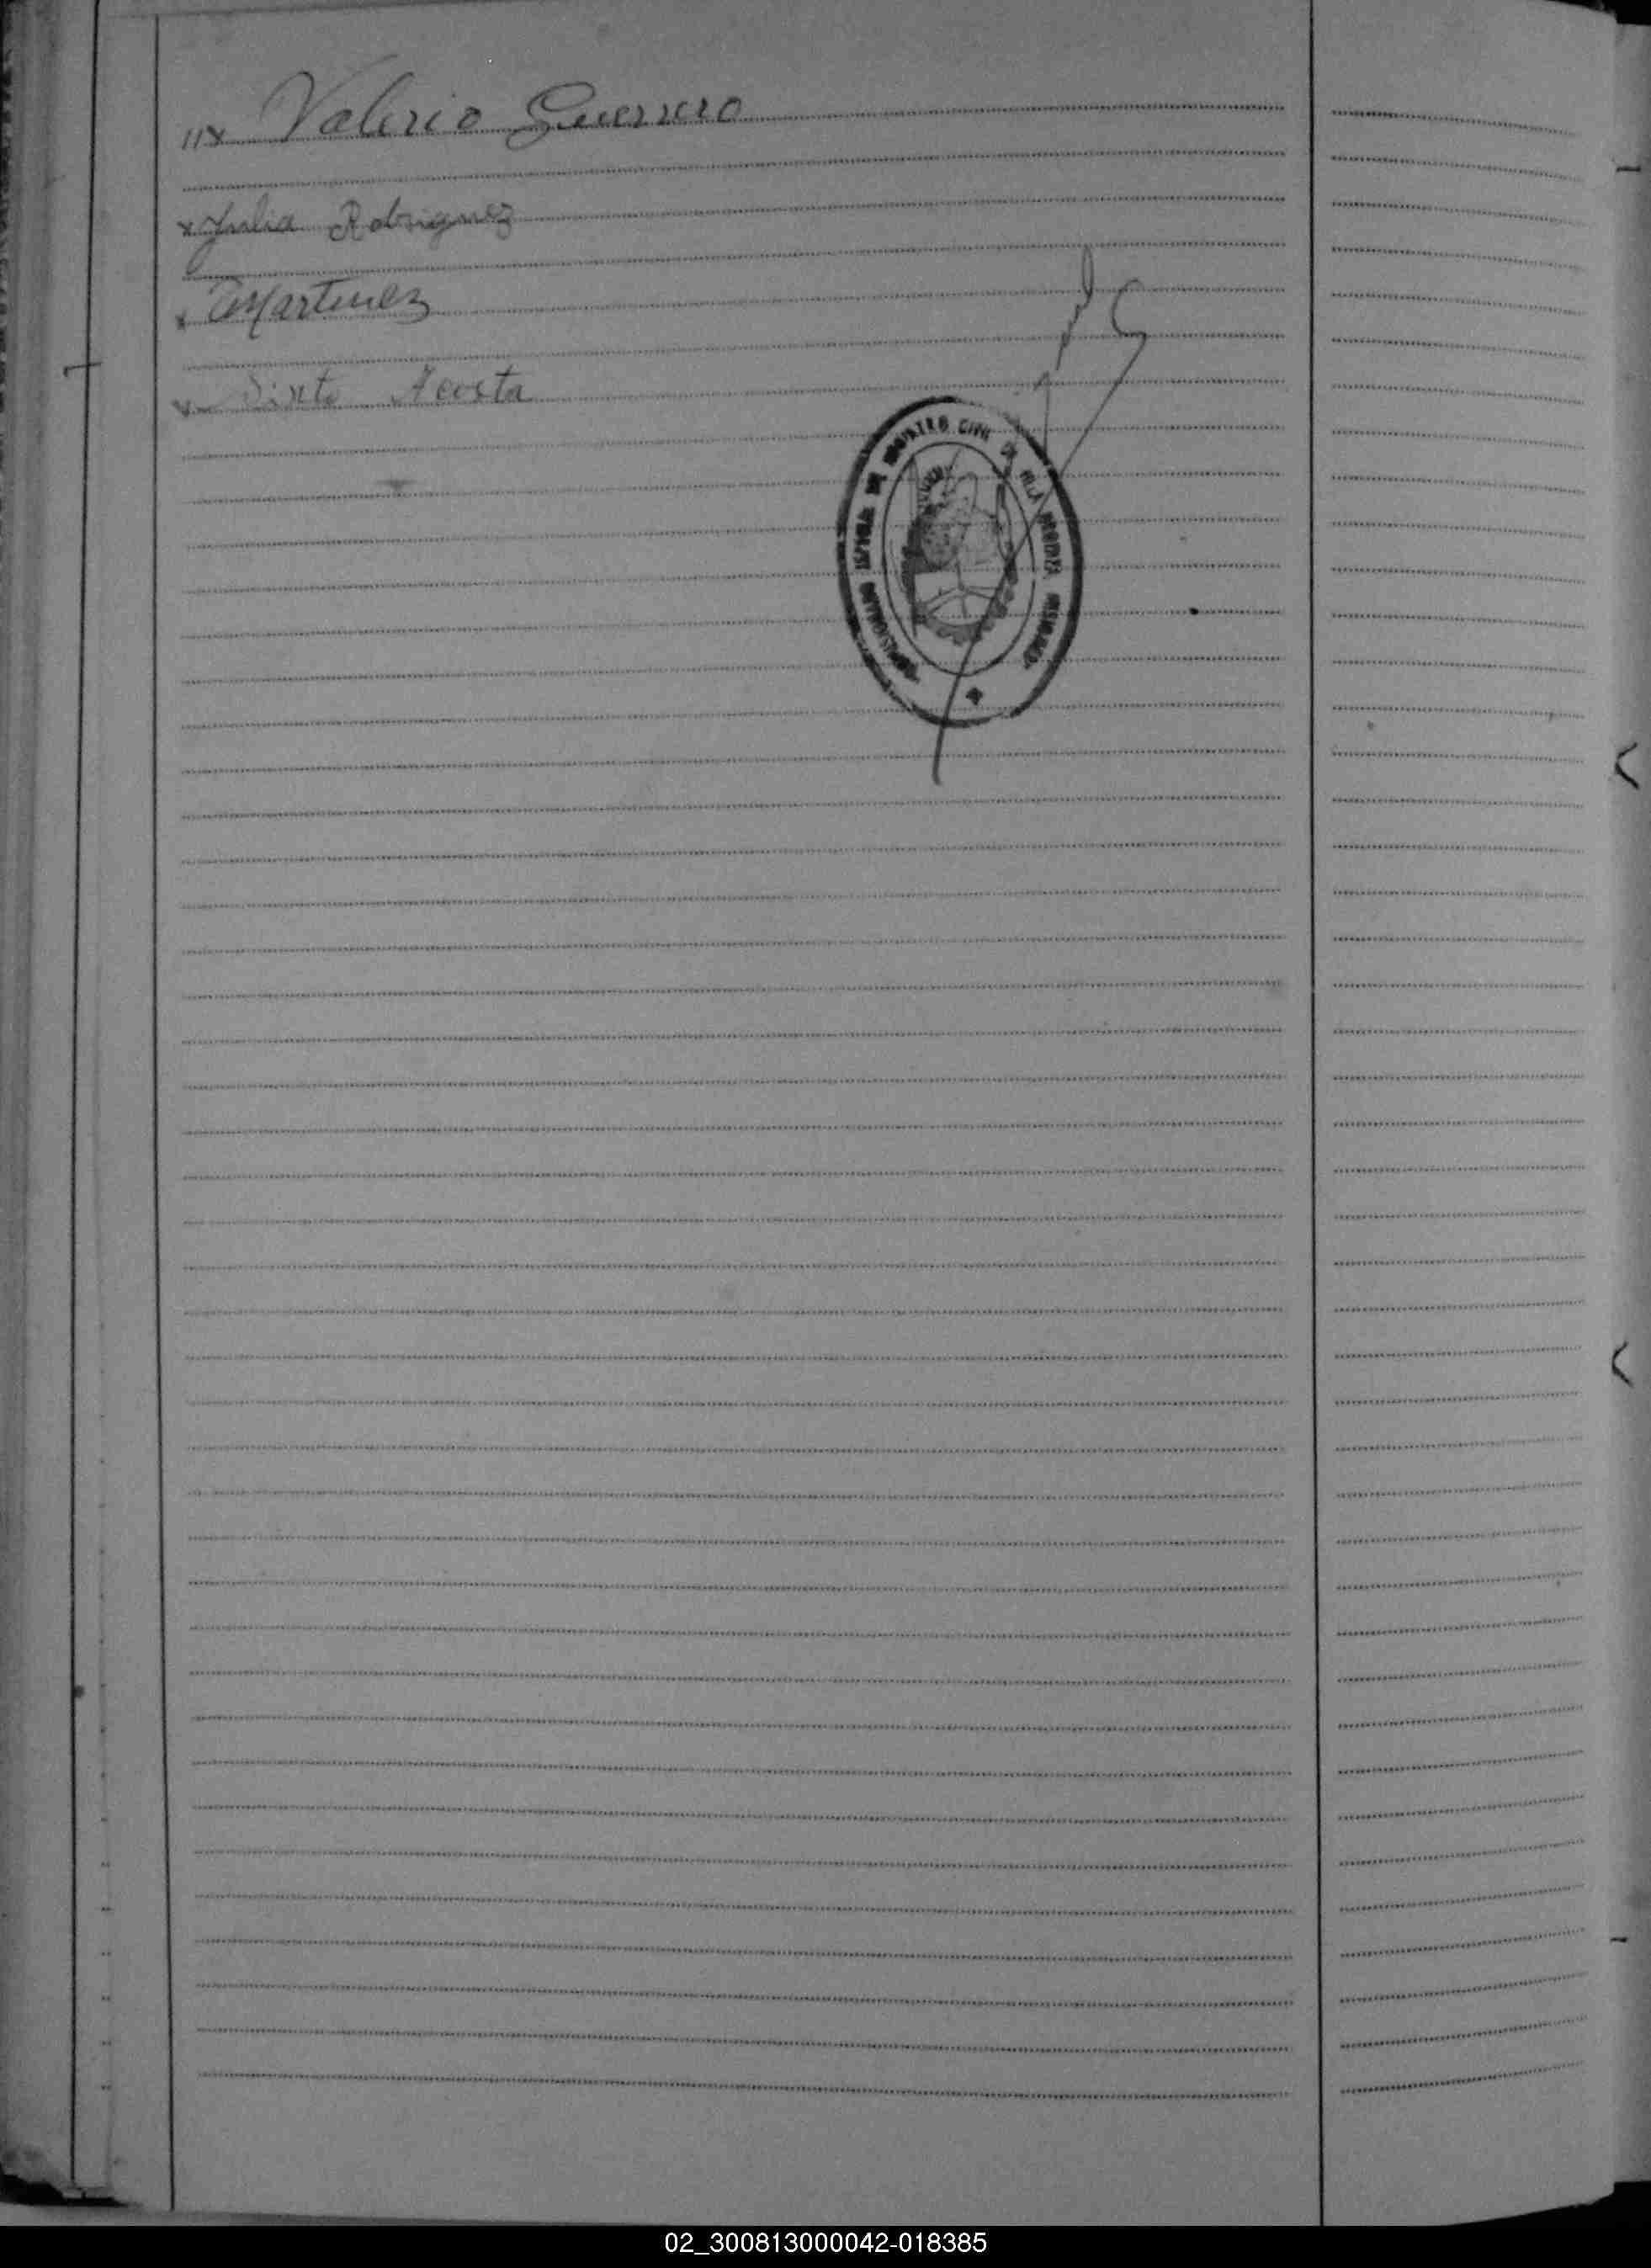 //x Valerio Guerrero
x Julia Rodriguez
x Martinez
x Sixto Acosta
REGISTRO CIVIL DE VILA
02_300813000042-018385